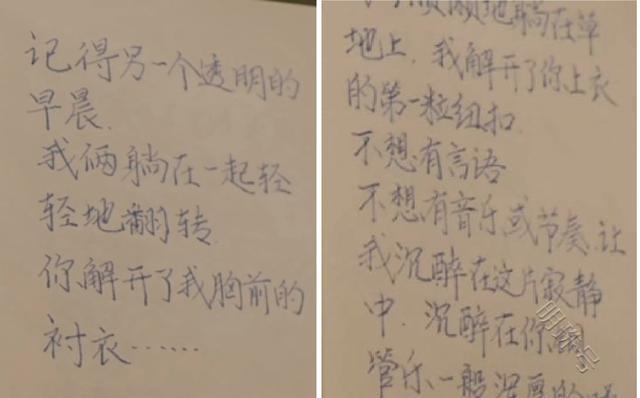 记得另一个透明的
早晨.
我俩躺在一起轻
轻地翻转.
你解开了我胸前的
衬衣……
地躺在草
地上,我解开了你上衣
的第一粒纽扣.
不想有言语
不想有音乐或节奏.让
我沉醉在这片寂静
中.沉醉在你
管乐一般深厚的